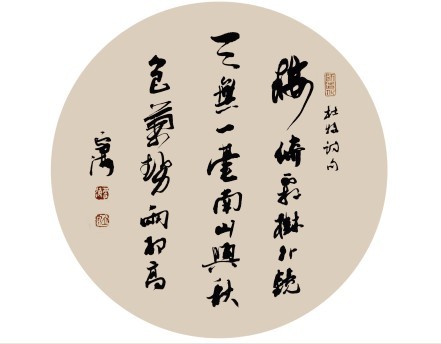 杜牧詩句
樓倚霜樹外鏡
天無一毫南山與秋
色氣勢兩相高